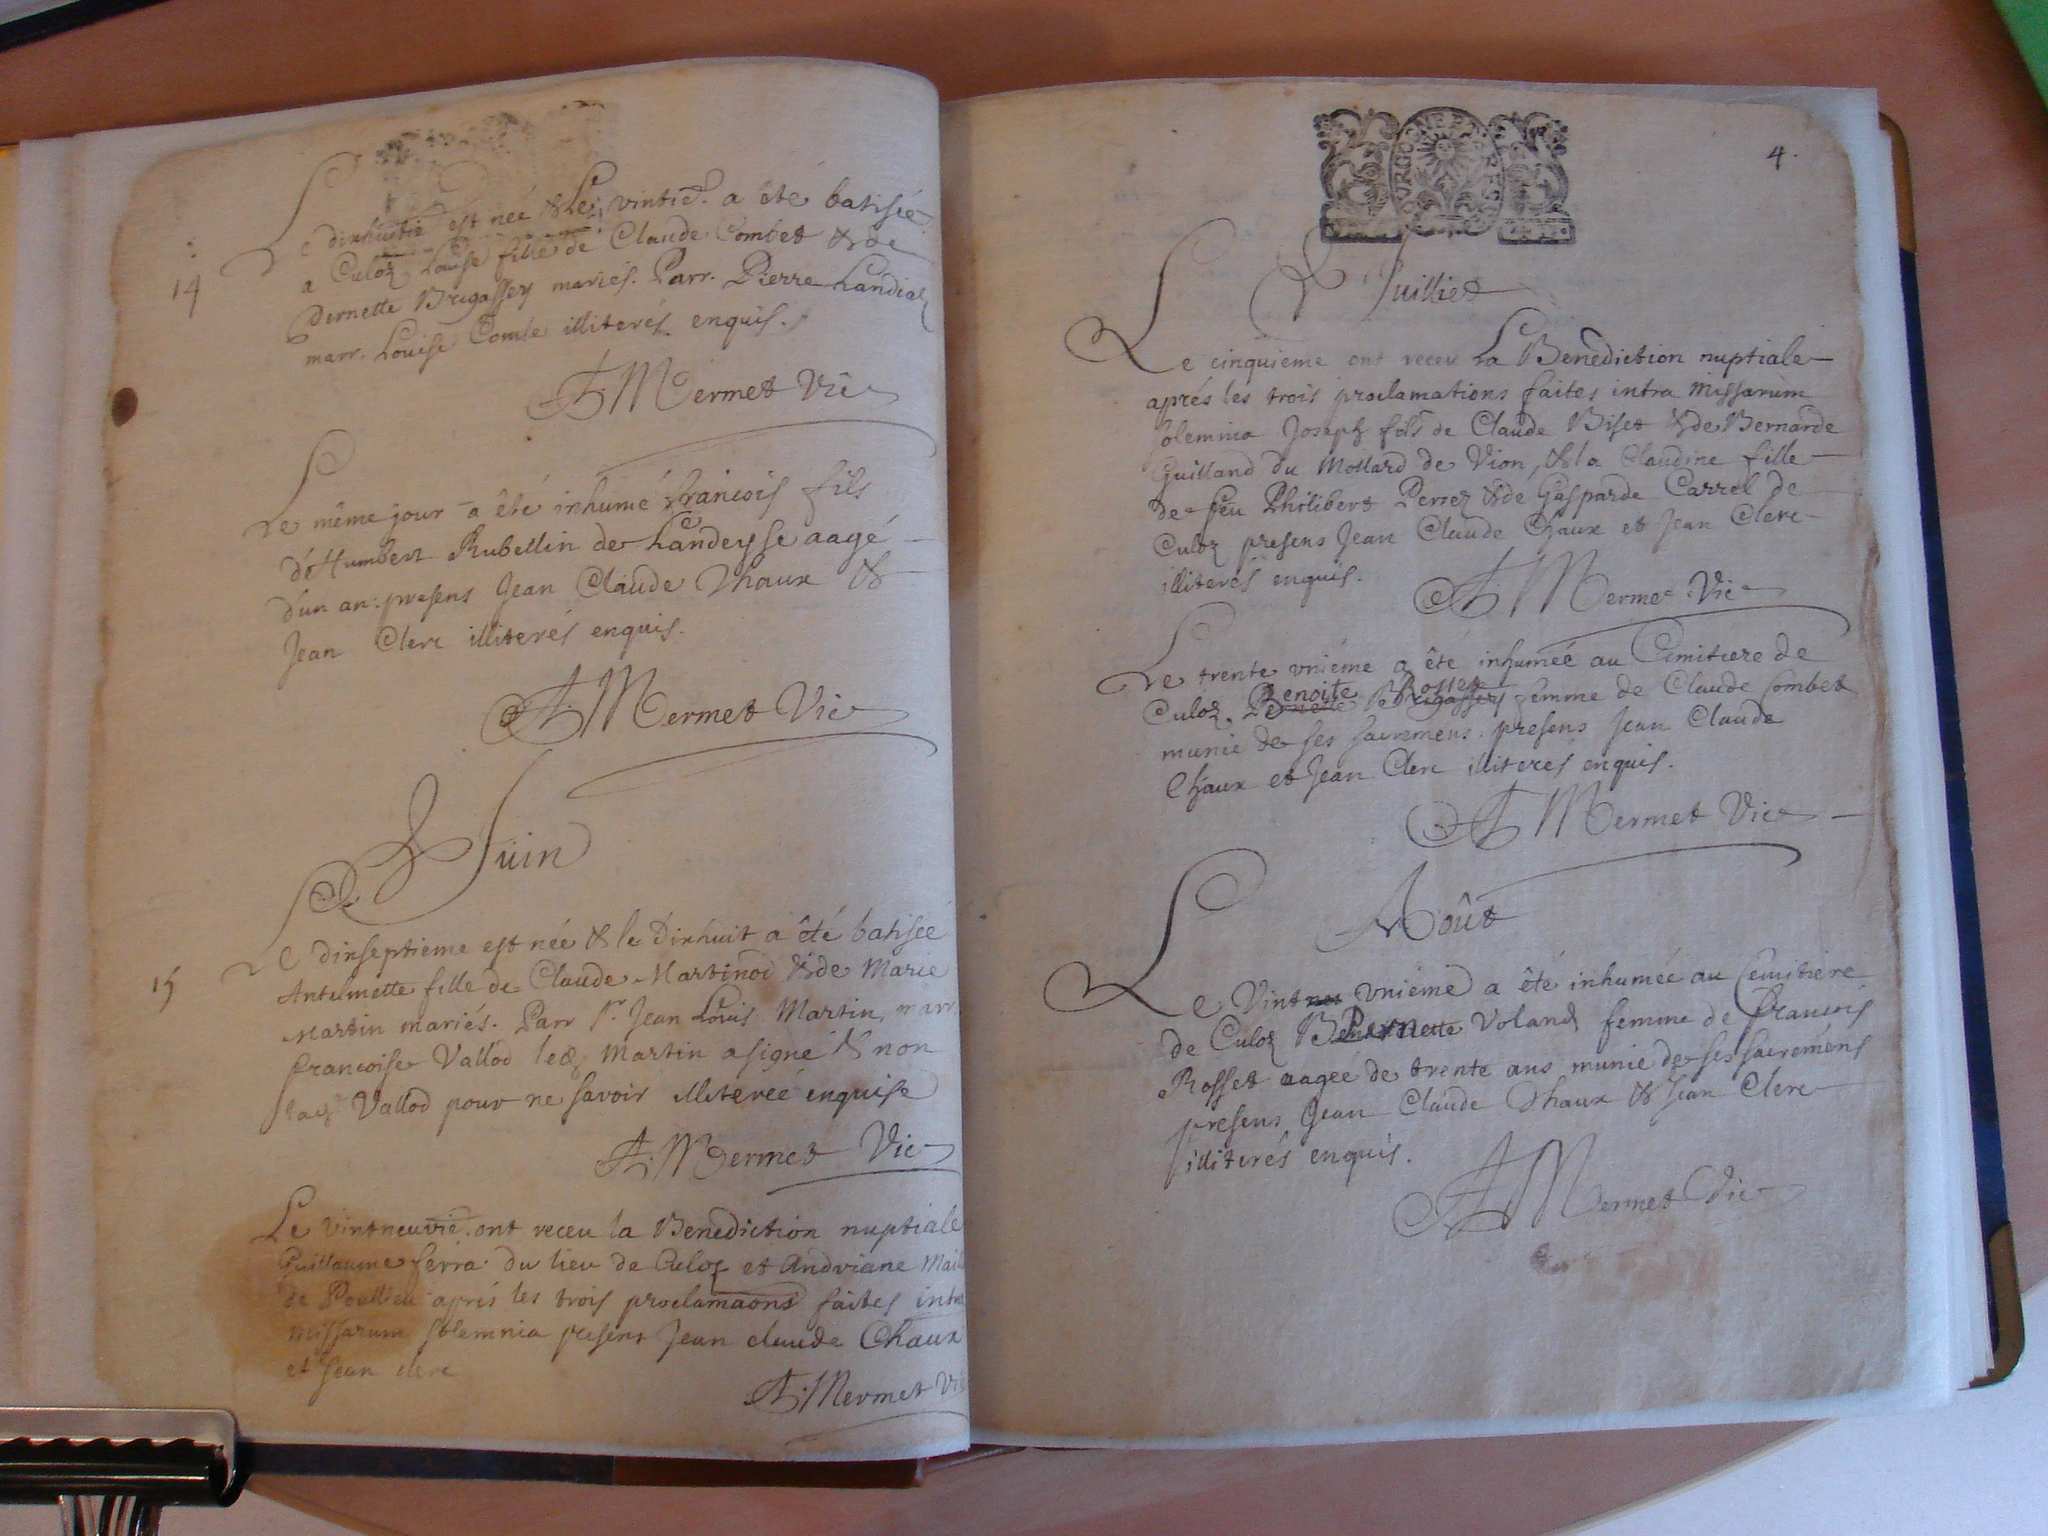 14
Le dixhuitie est née & le vintie. a êté batisée
a Culoz Louise fille de Claude Combet & de
Pernette Brigassey mariés. Parr. Pierre Landiaz
marr. Louise Combe illiterés enquis.
A. Mermet Vic
Le même jour a êté inhumé francois fils
d'Humbert Rubellin de Landeysse aagé
d'un an: presens Jean Claude Chaux &
Jean Clerc illiterés enquis.
A. Mermet Vic
Juin
15
Le dixseptieme est née & le dixhuit a êté batisée
Antelmette fille de Claude Martinod & de Marie
Martin mariés. Parr Sr. Jean Louis Martin, marr.
francoise Vallod led. Martin a signé & non
lad. Vallod pour ne savoir illiterée enquise
A. Mermet Vic
Le vintneuvie. ont receu la Benediction nuptiale
Guillaume ferra du lieu de Culoz et Andriane
de Poullieu aprés les trois proclamaons faites intra
missarum solemnia presens Jean claude Chaux
et Jean clerc
A. Mermet Vic
BOURGOGNE ET BRESSE
4.
Juilliet
Le cinquieme ont receu La Benediction nuptiale
aprés les trois proclamations faites intra missarum
solemnia Joseph fils de Claude Biset & de Bernarde
Guilland du Mollard de Vion, & la Claudine fille
de feu Philibert Perrez & de Gasparde Carrel de
Culoz presens Jean Claude Chaux et Jean Clerc
illiterés enquis.
A. Mermet Vic
Le trente vniéme a êté inhumée au Cimitiere de
Benoite Rosset
Culoz. Pernette Brigassey femme de Claude Combet
munie de ses sacremens. presens Jean Claude
Chaux et Jean Clerc illiteres enquis.
A. Mermet Vic
Août
Le Vint vniéme a êté inhumée au Cemitiere
de Culoz Pernette Voland femme de francois
Rosset aageé de trente ans munie de ses sacremens
presens Jean Claude Chaux & Jean Clerc
illiterés enquis.
A. Mermet Vic